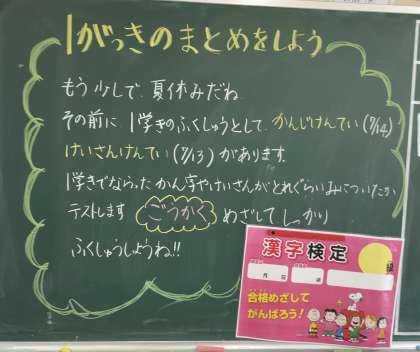 1がっきのまとめをしよう
もう少しで、夏休みだね
その前に、1学きのふくしゅうとして、かんじけんてい(7/14)
けいさんけんてい(7/13)があります。
1学きでならったかん字やけいさんがどれぐらいみについたか
テストします ごうかくめざしてしっかり
ふくしゅうしようね!!
漢字検定
級
月
合格めざして
がんばろう!